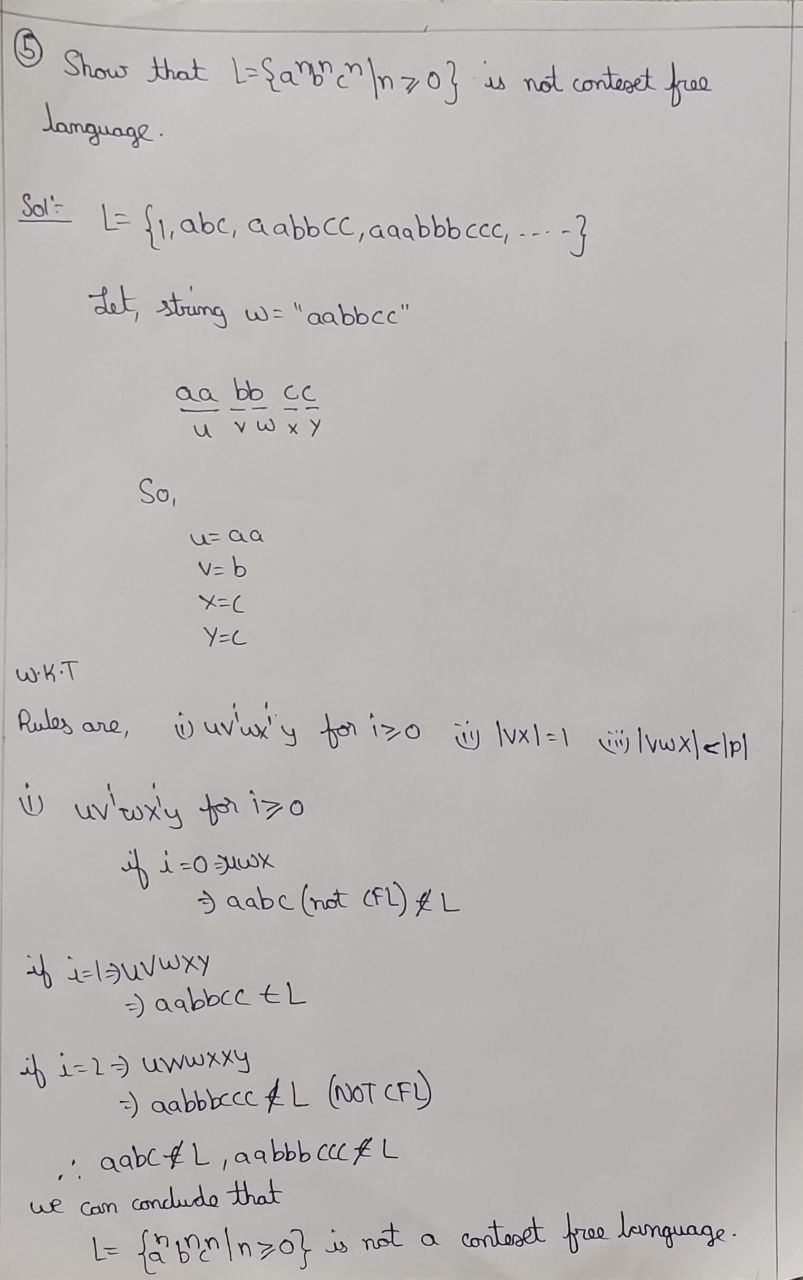 ⑤ Show that L={aⁿbⁿcⁿ|n≥0} is not conteset free
language.
Sol:- L= {1, abc, aabbcc, aaabbbccc, ....-}
Let, string w= "aabbcc"
aa bb cc
u v w x y
So,
u= aa
v= b
x=c
y=c
W.K.T
Rules are, i) uvⁱwxⁱy for i≥0 ii) |vx|=1 iii) |vwx|<|p|
i) uvⁱwxⁱy for i≥0
if i=0 ⇒uwx
⇒ aabc (not CFL) ∉ L
if i=1⇒uvwxy
⇒ aabbcc ∈ L
if i=2 ⇒ uvvwxxy
⇒ aabbbccc ∉ L (NOT CFL)
∴ aabc ∉ L , aabbbccc ∉ L
we can conclude that
L= {aⁿbⁿcⁿ|n≥0} is not a conteset free language.